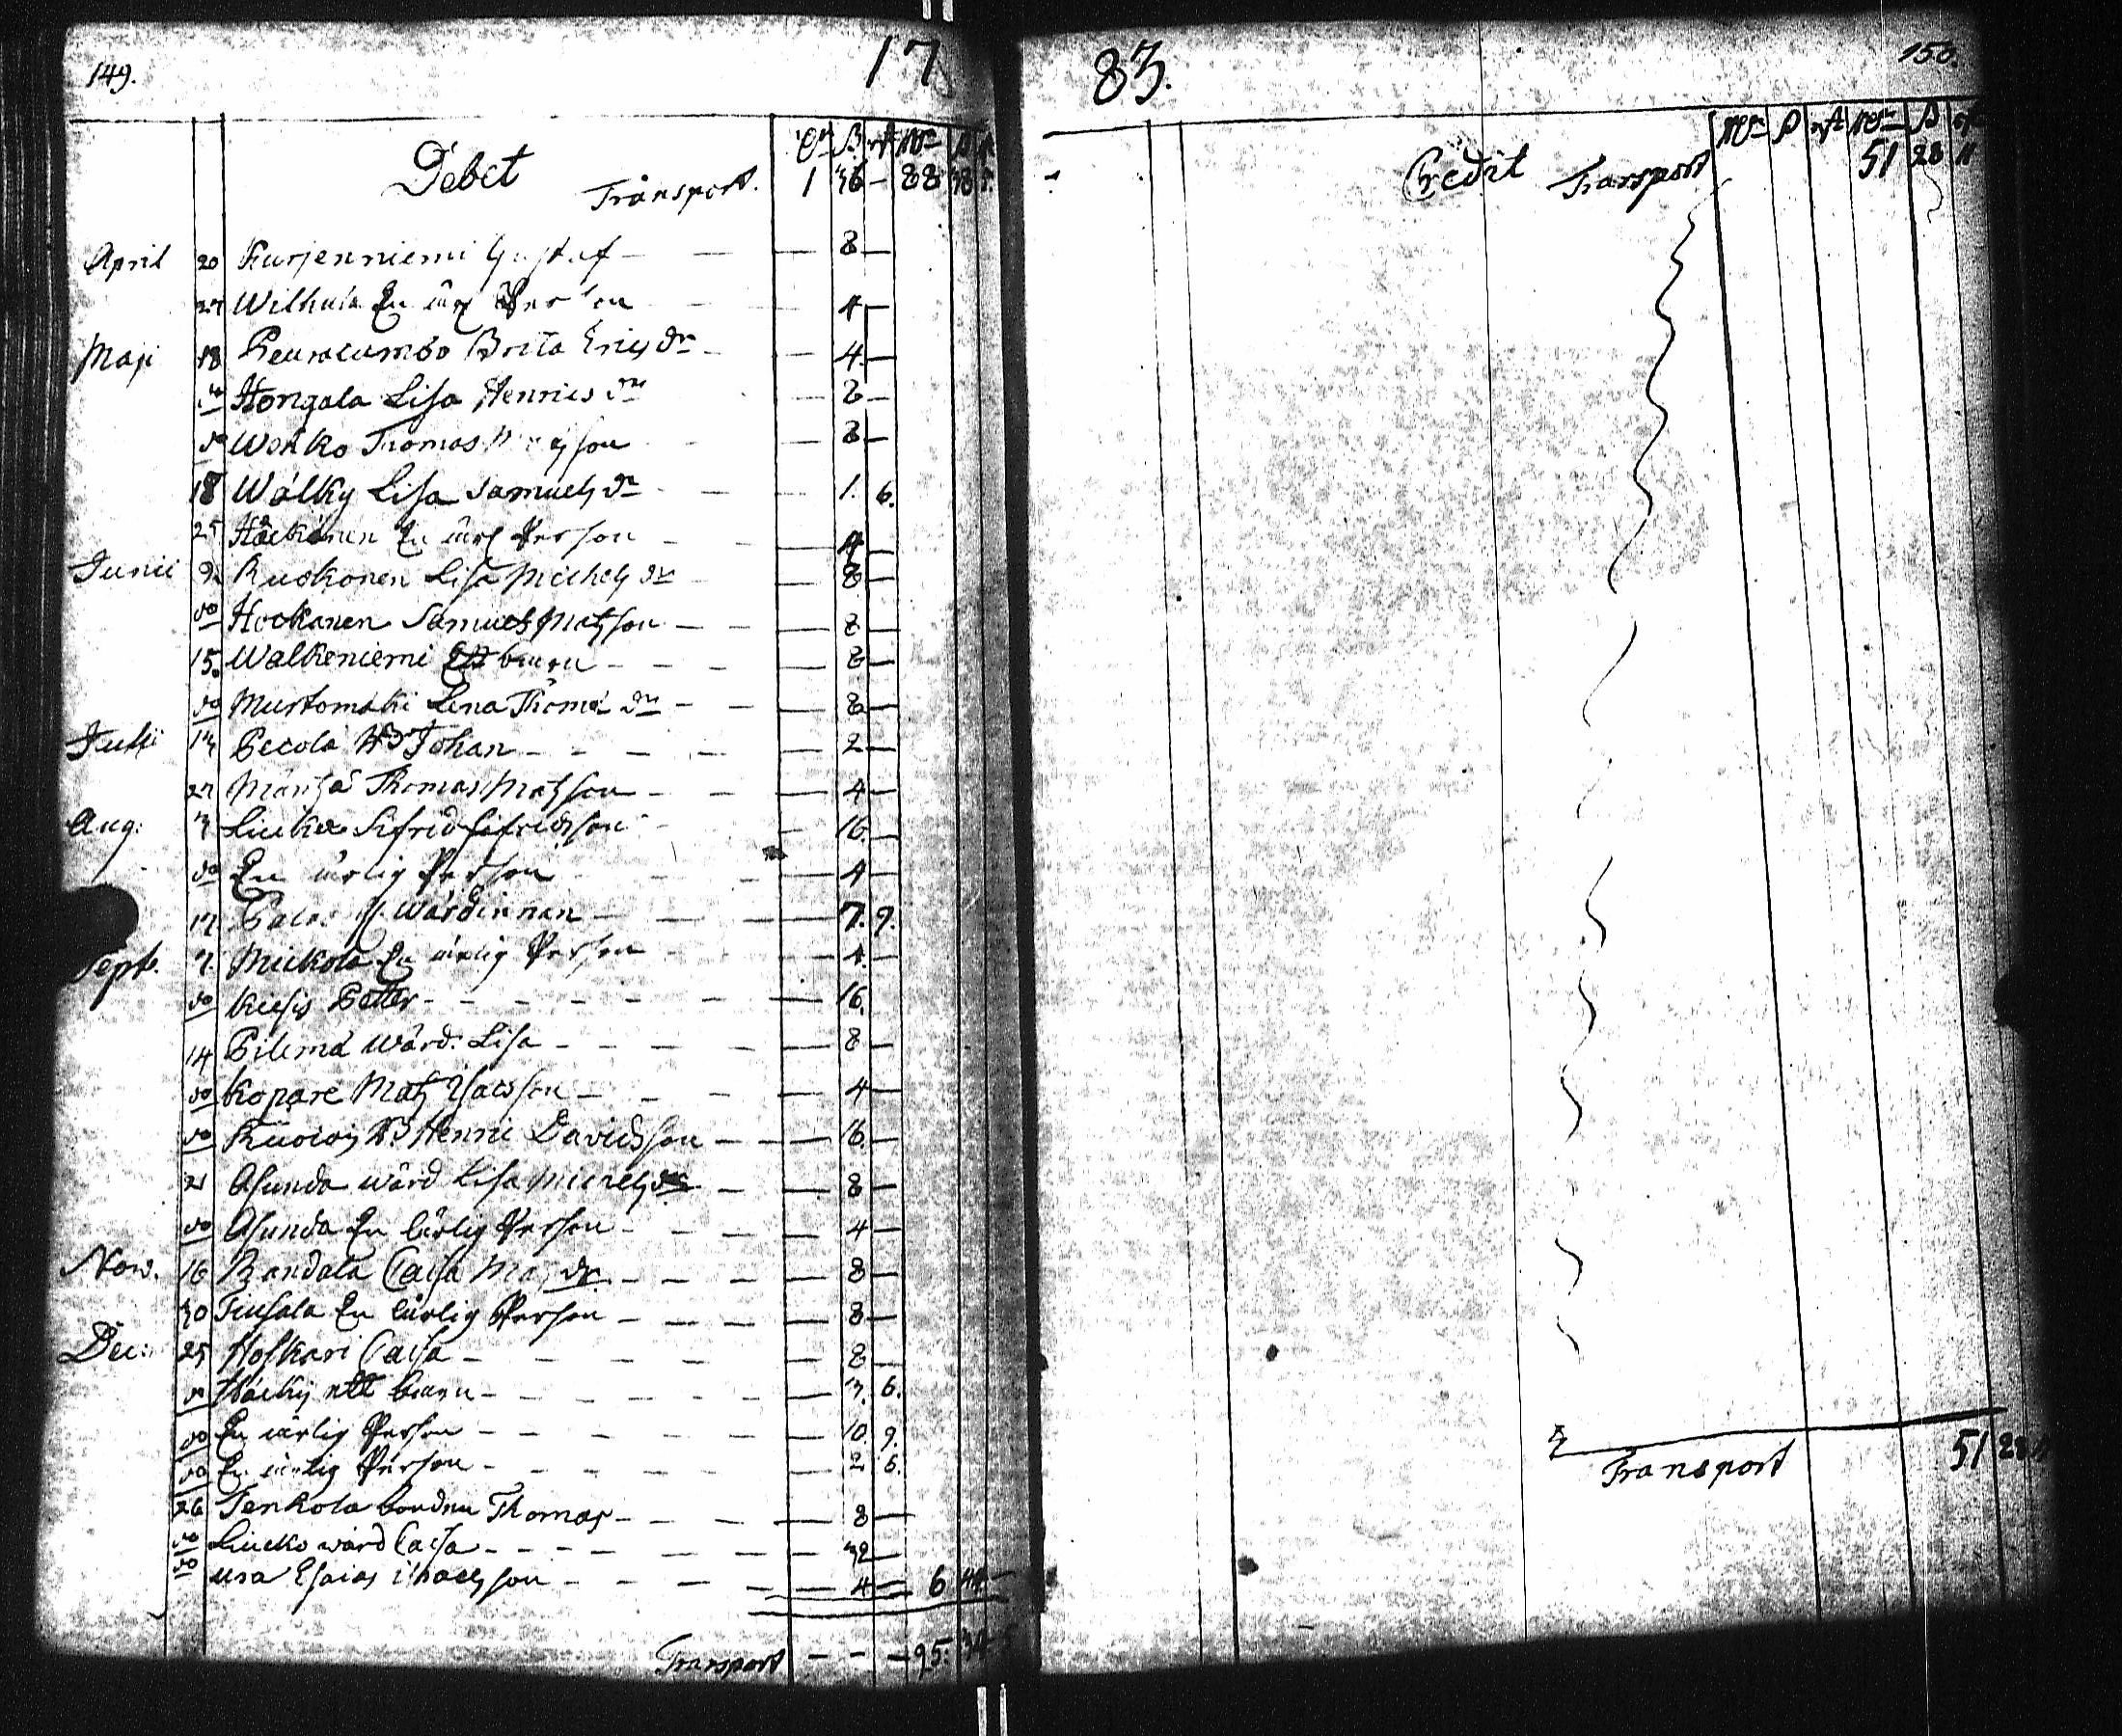 149. 17
Debet
Transport. 1 36 - 88 38
April 20 Kurjenniemi Gustaf - - - 8 -
27 Wilhula En ärl Person - - 4 -
Maji 18 Peuracumbo Brita Erics dr - - 4 -
do Hongala Lisa Henrics dr - 8 -
do Wohko Thomas son - 8 -
18 Wälky Lisa Samuels dr - - 1. 6.
25 En ärl Person - - 4 -
Junii 9 Ruokonen Lisa Michels dr - - 8 -
do Hockanen Samuel Matsson - - - 8 -
15. Walkeniemi Ett barn - - - - 8 -
do Mustomäki Lena Thoma dr - - - 8 -
Julii 13 Peccola Johan - - - - - 2 -
27 Thomas Matsson - - - 4 -
Aug: 3 Lucko Sifred Sifredsson - - 16. -
do En ärlig Person - - 4 -
17 Wärdinnan - - - - 7. 9.
Sept. 7. Mickola En ärlig Person - - - 4. -
do Kiesis Petter - - - - - - 16. -
14 Pilemä Wärd: Lisa - - - - 8 -
do Kopare Mats Isacsson - - - - 4 -
do Henric Davidsson - - - 16. -
21 Asunda wärd Lisa Michels dr - - 8 -
do Asunda En ärlig Person - - - - 4 -
Nov. 16 Pandala Caisa Mats dr - - - - 8 -
30 Tuusala En ärlig Person - - - - 8 -
Dec: 25 Hoskari Caisa - - - - - 8 -
do Häcky ett barn - - - - - - 3. 6.
do En ärlig Person - - - - - 10. 9.
do En ärlig Person - - - - - 2 6.
26 Tenkola bonden Thomas - - - - 8 -
do Lucko wärd Caisa - - - - - - 32 -
do Esaias son - - - - - 4 - 6 44 -
Transport - - - 95. 34
83. 150.
Credit Transport 51 28 11
Transport 51 28